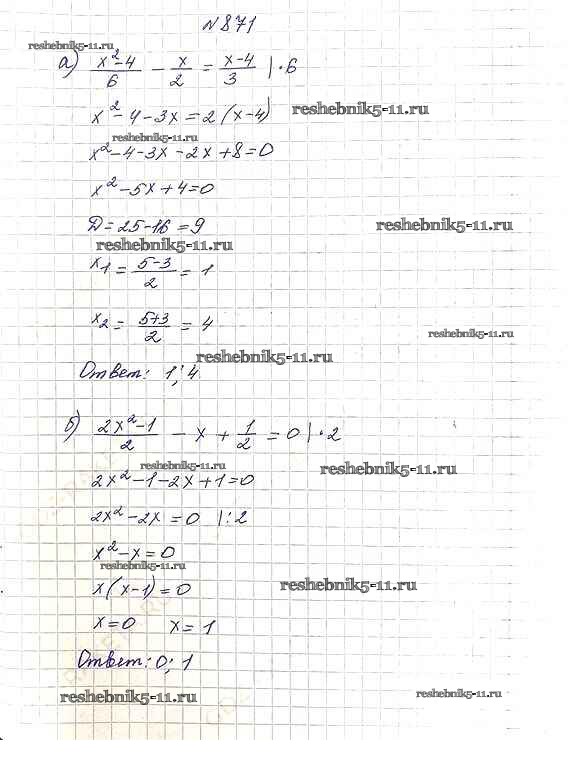 №871
reshebnik5-11.ru
а) (x²-4)/6 - x/2 = (x-4)/3 |·6
x²-4-3x=2(x-4)
reshebnik5-11.ru
reshebnik5-11.ru
x²-4-3x-2x+8=0
x²-5x+4=0
D=25-16=9
reshebnik5-11.ru
reshebnik5-11.ru
x1 = (5-3)/2 = 1
x2 = (5+3)/2 = 4
reshebnik5-11.ru
reshebnik5-11.ru
Ответ: 1; 4
б) (2x²-1)/2 - x + 1/2 = 0 |·2
reshebnik5-11.ru
reshebnik5-11.ru
2x²-1-2x+1=0
2x²-2x=0 |:2
x²-x=0
reshebnik5-11.ru
reshebnik5-11.ru
x(x-1)=0
x=0 x=1
Ответ: 0; 1
reshebnik5-11.ru
reshebnik5-11.ru